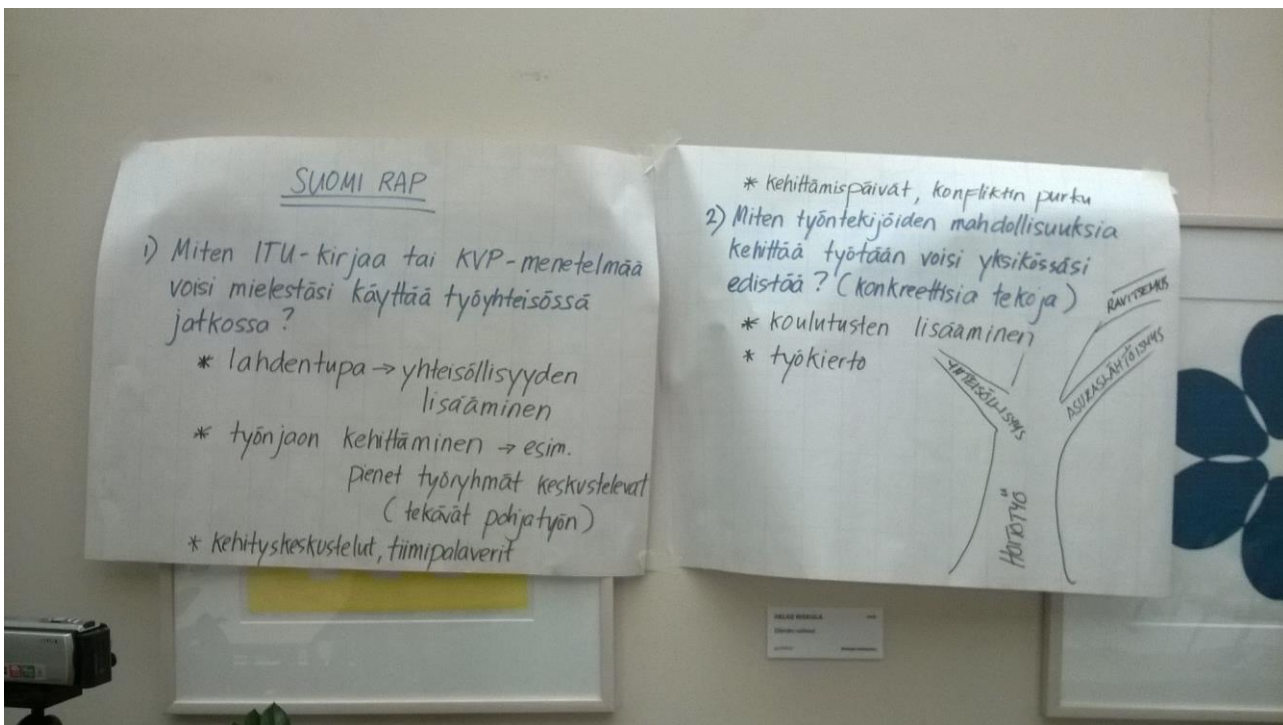 SUOMI RAP
1) Miten ITU-kirjaa tai KVP-menetelmää
voisi mielestäsi käyttää työyhteisössä
jatkossa?
* lahdentupa → yhteisöllisyyden
lisääminen
* työnjaon kehittäminen → esim.
pienet työryhmät keskustelevat
(tekävät pohjatyön)
* kehityskeskustelut, tiimipalaverit
* kehittämispäivät, konfliktin purku
2) Miten työntekijöiden mahdollisuuksia
kehittää työtään voisi yksikössäsi
edistää? (konkreettisia tekoja)
* koulutusten lisääminen
* työkierto
YHTEISÖLLISYYS
RAVITSEMUS
ASUKASLÄHTÖISYYS
HOITOTYÖ